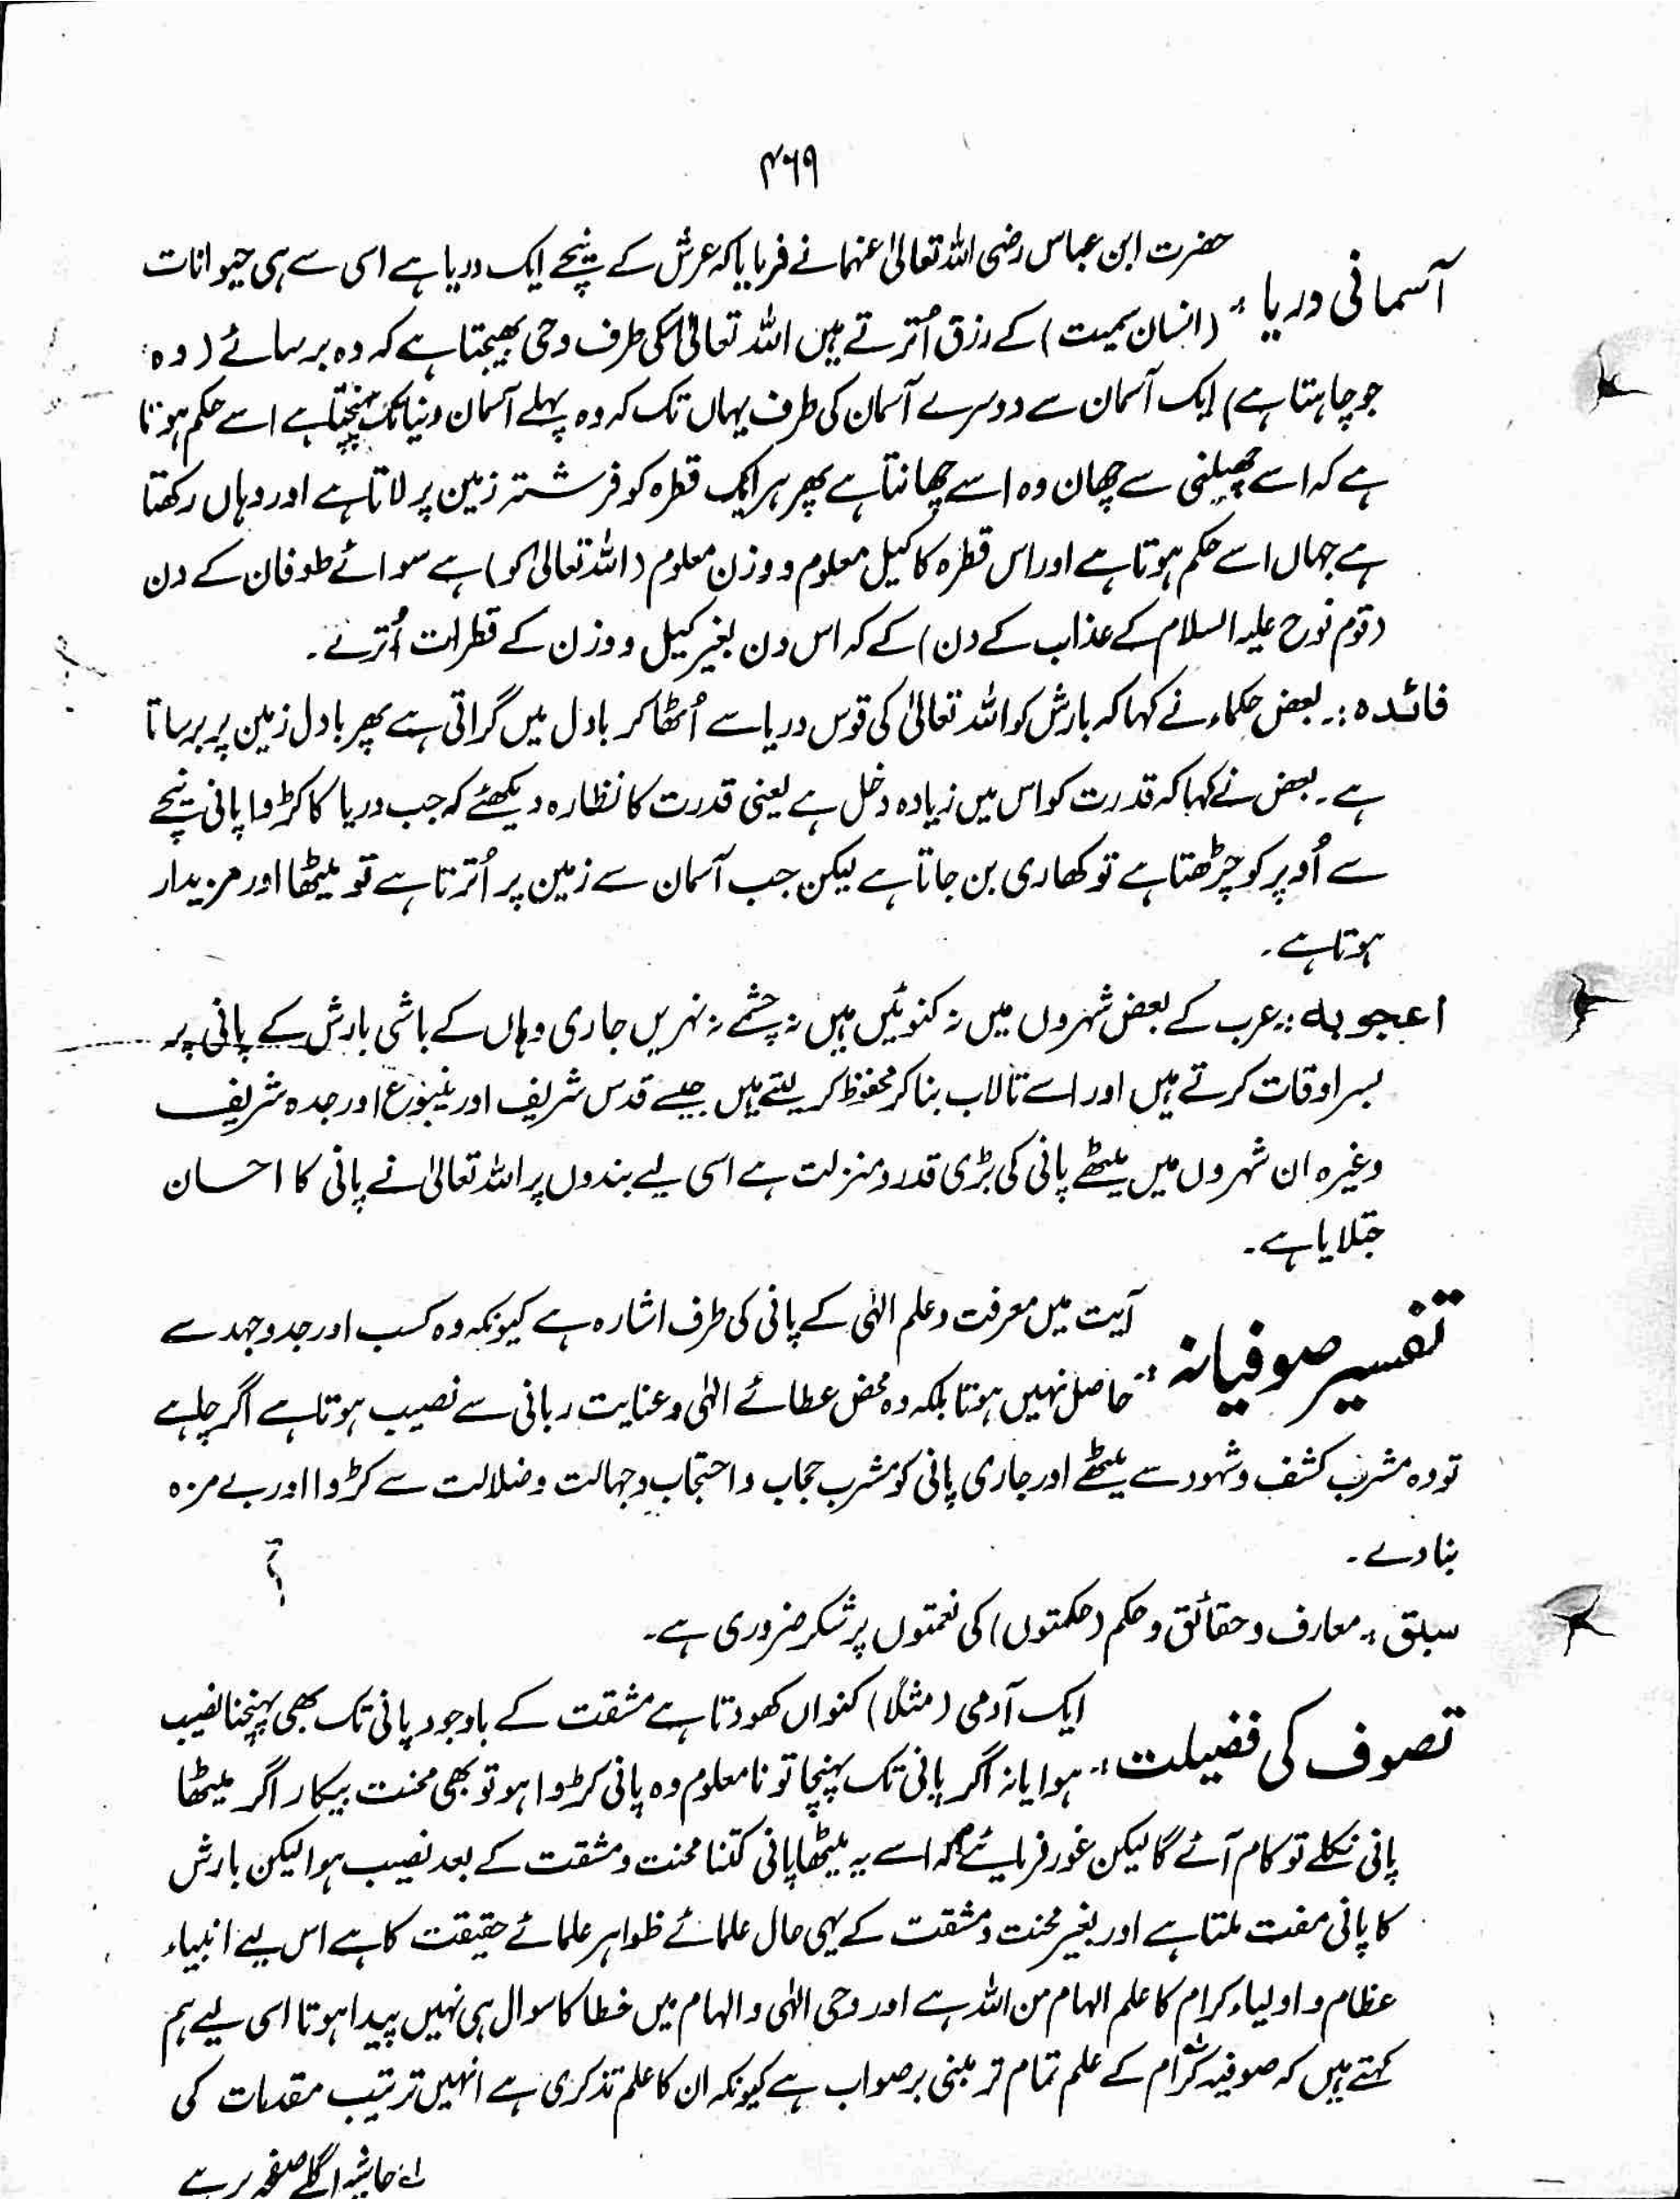 ۴۶۹
آسمانی دریا :۔ حضرت ابن عباس رضی اللہ تعالیٰ عنہما نے فرمایا کہ عرش کے نیچے ایک دریا ہے اسی سے ہی حیوانات
(انسان سمیت) کے رزق اُترتے ہیں اللہ تعالیٰ اسکی طرف وحی بھیجتا ہے کہ وہ برسائے (وہ
جو چاہتا ہے) ایک آسمان سے دوسرے آسمان کی طرف یہاں تک کہ وہ پہلے آسمان دنیا تک پہنچتا ہے اسے حکم ہوتا
ہے کہ اسے چھلنی سے چھان وہ اسے چھانتا ہے پھر ہر ایک قطرہ کو فرشتہ زمین پر لاتا ہے اور وہاں رکھتا
ہے جہاں اسے حکم ہوتا ہے اور اس قطرہ کا کیل معلوم و وزن معلوم (اللہ تعالیٰ کو) ہے سوائے طوفان کے دن
(قوم نوح علیہ السلام کے عذاب کے دن) کے کہ اس دن بغیر کیل و وزن کے قطرات اُترے۔
فائدہ :۔ بعض حکماء نے کہا کہ بارش کو اللہ تعالیٰ کی قوس دریا سے اُٹھا کر بادل میں گراتی ہے پھر بادل زمین پر برساتا
ہے۔ بعض نے کہا کہ قدرت کو اس میں زیادہ دخل ہے یعنی قدرت کا نظارہ دیکھئے کہ جب دریا کا کڑوا پانی نیچے
سے اُوپر کو چڑھتا ہے تو کھاری بن جاتا ہے لیکن جب آسمان سے زمین پر اُترتا ہے تو میٹھا اور مزیدار
ہوتا ہے۔
اعجوبہ :۔ عرب کے بعض شہروں میں نہ کنوئیں ہیں نہ چشمے نہ نہریں جاری وہاں کے باشی بارش کے پانی پر
بسر اوقات کرتے ہیں اور اسے تالاب بنا کر محفوظ کر لیتے ہیں جیسے قدس شریف اور ینبوع اور جدہ شریف
وغیرہ ان شہروں میں میٹھے پانی کی بڑی قدر و منزلت ہے اسی لیے بندوں پر اللہ تعالیٰ نے پانی کا احسان
جتلایا ہے۔
تفسیر صوفیانہ :۔ آیت میں معرفت و علم الٰہی کے پانی کی طرف اشارہ ہے کیونکہ وہ کسب اور جدوجہد سے
حاصل نہیں ہوتا بلکہ وہ محض عطائے الٰہی و عنایت ربانی سے نصیب ہوتا ہے اگر چاہے
تو وہ مشرب کشف و شہود سے میٹھے اور جاری پانی کو مشرب حجاب و احتجاب و جہالت و ضلالت سے کڑوا اور بے مزہ
بنا دے۔
سبق :۔ معارف و حقائق و حکم (حکمتوں) کی نعمتوں پر شکر ضروری ہے۔
تصوف کی فضیلت :۔ ایک آدمی (مثلاً) کنواں کھودتا ہے مشقت کے باوجود پانی تک بھی پہنچنا نصیب
ہوا یا نہ اگر پانی تک پہنچا تو نامعلوم وہ پانی کڑوا ہو تو بھی محنت بیکار اگر میٹھا
پانی نکلے تو کام آئے گا لیکن غور فرمایئے کہ اسے یہ میٹھا پانی کتنا محنت و مشقت کے بعد نصیب ہوا لیکن بارش
کا پانی مفت ملتا ہے اور بغیر محنت و مشقت کے یہی حال علمائے ظواہر علمائے حقیقت کا ہے اس لیے انبیاء
عظام و اولیاء کرام کا علم الہام من اللہ ہے اور وحی الٰہی و الہام میں خطا کا سوال ہی نہیں پیدا ہوتا اسی لیے ہم
کہتے ہیں کہ صوفیہ کرام کے علم تمام تر مبنی بر صواب ہے کیونکہ ان کا علم تذکری ہے انہیں ترتیب مقدمات کی
لے: حاشیہ اگلے صفحہ پر ہے